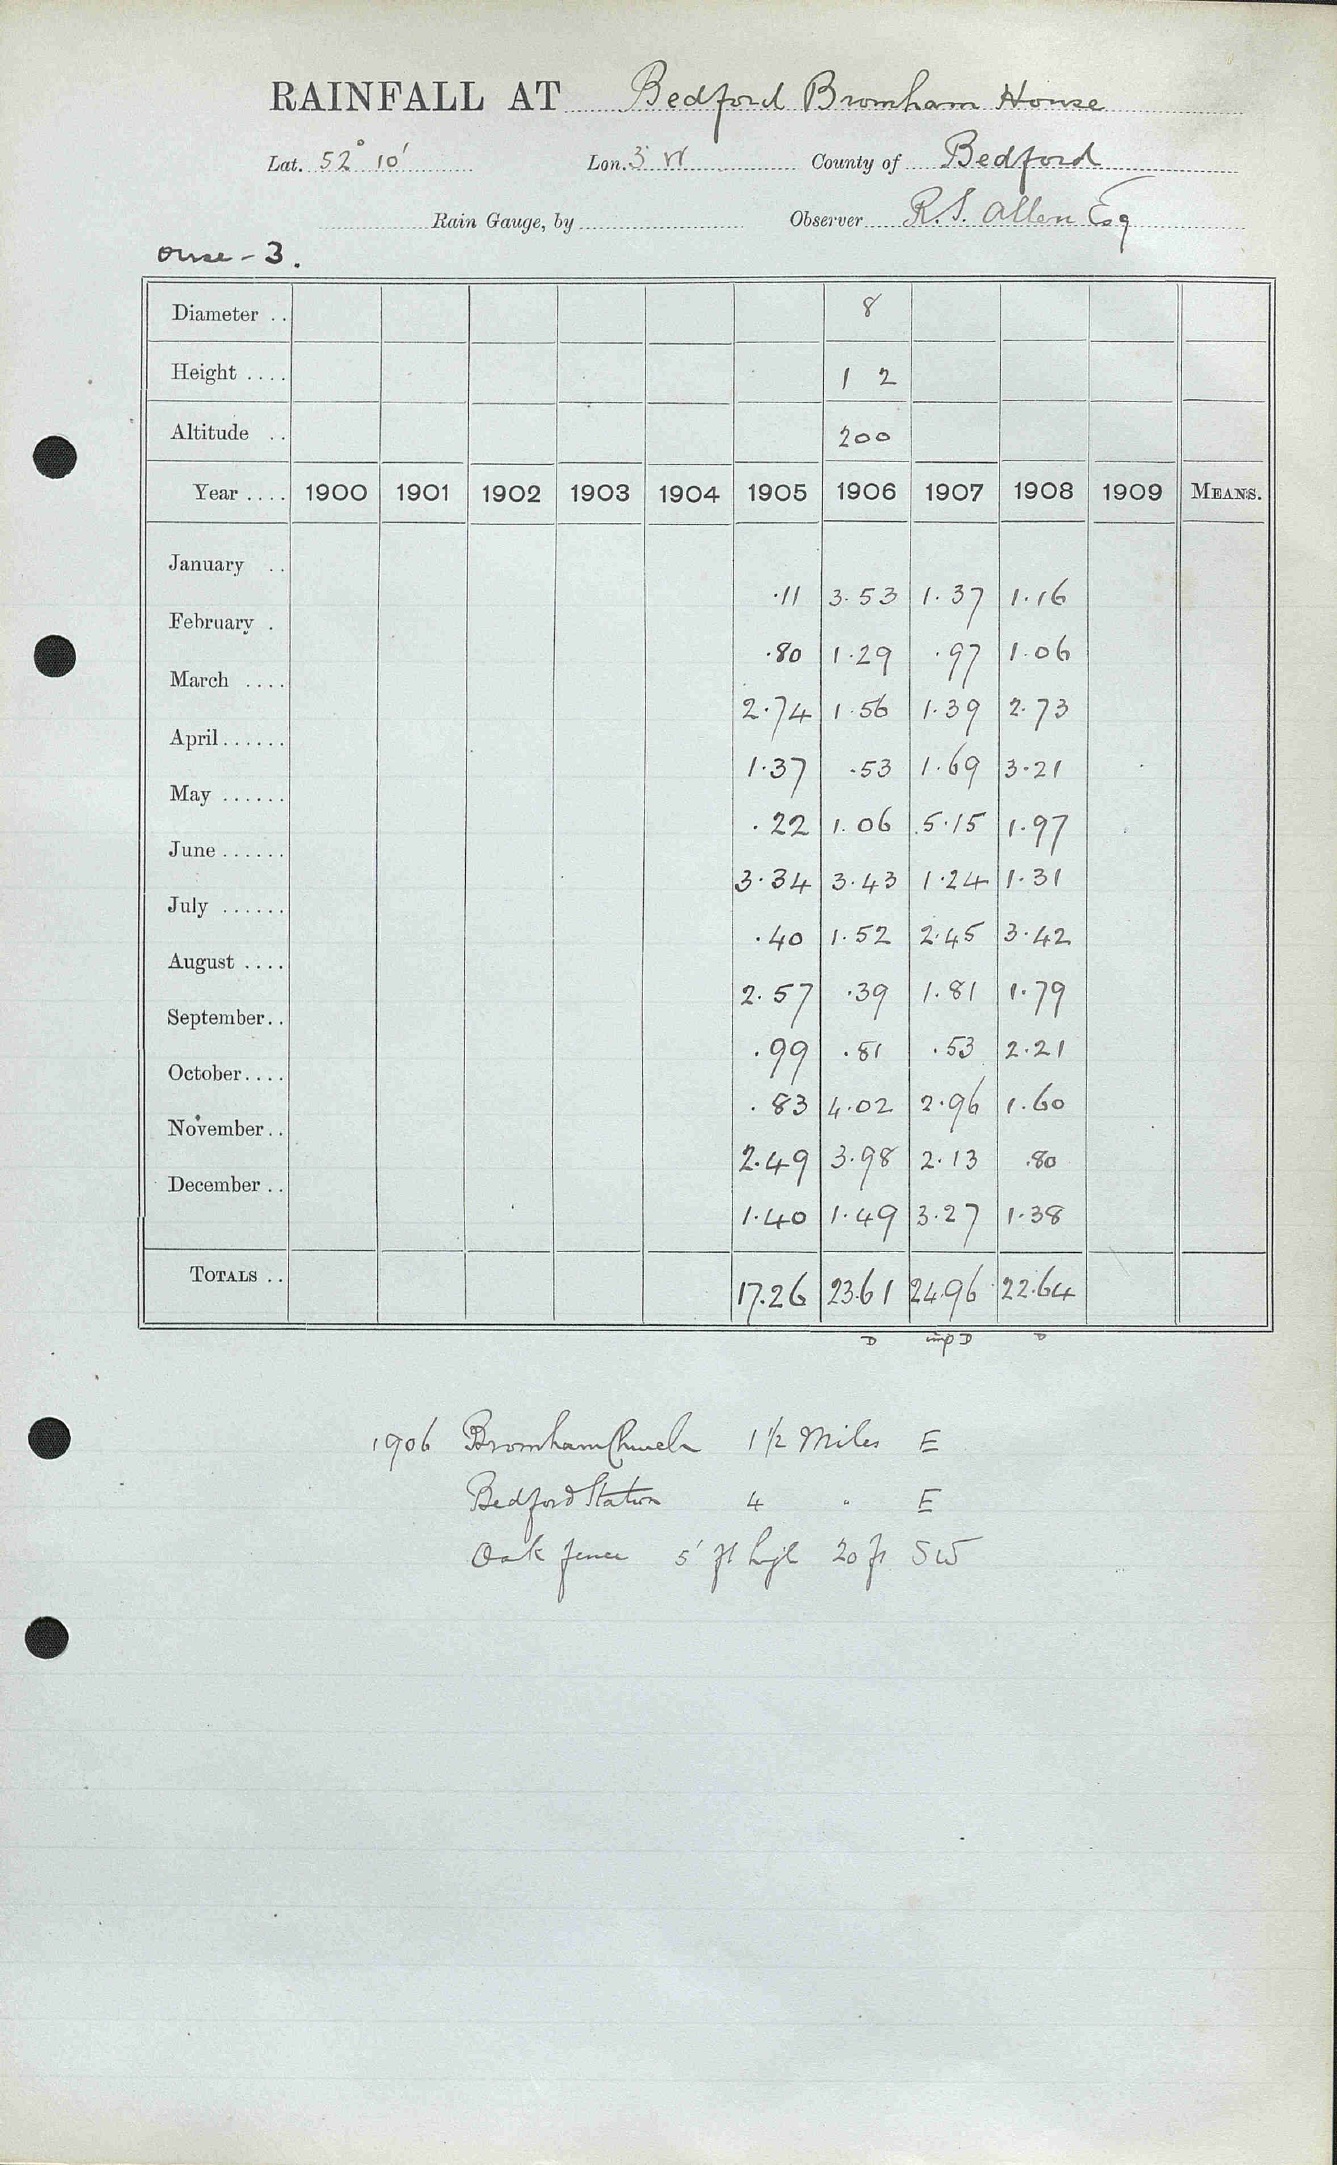 RAINFALL AT Bedford Bromham House
Lat. 52° 10' Lon. 3 W County of Bedford
Rain Gauge, by Observer R.S. Allen Esq
Ouse - 3.
Diameter .. 8
Height .... 1 2
Altitude .. 200
Year .... 1900 1901 1902 1903 1904 1905 1906 1907 1908 1909 MEANS.
January .. .11 3.53 1.37 1.16
February . .80 1.29 .97 1.06
March .... 2.74 1.56 1.39 2.73
April ...... 1.37 .53 1.69 3.21
May ...... .22 1.06 5.15 1.97
June ...... 3.34 3.43 1.24 1.31
July ...... .40 1.52 2.45 3.42
August .... 2.57 .39 1.81 1.79
September.. .99 .81 .53 2.21
October.... .83 4.02 2.96 1.60
November.. 2.49 3.98 2.13 .80
December .. 1.40 1.49 3.27 1.38
TOTALS .. 17.26 23.61 24.96 22.64
D imp D D
1906 Bromham Church 1 1/2 Miles E
Bedford Station 4 " E
Oak fence 5' ft high 20 ft SW